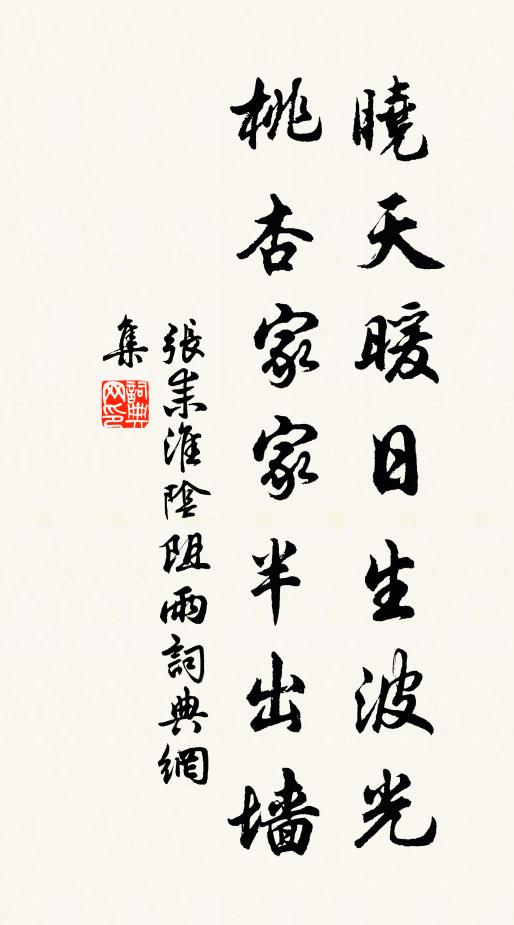 曉天暖日生波光
桃杏家家半出墻
張耒淮陰阻雨詞典網
集
詞典網印